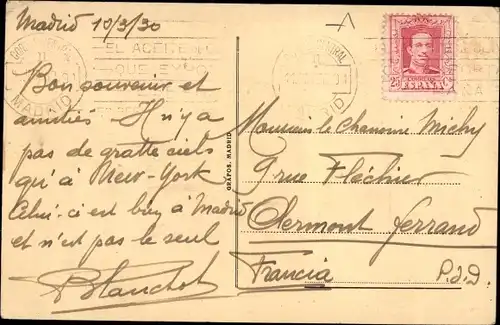 Madrid 10/3/30
Bon souvenir et
amitiés. Il n'y a
pas de gratte ciels
qu'à New-York
Celui-ci est bien à Madrid
et n'est pas le seul
Blanchet
GRAFOS. MADRID
MADRID
25 ESPAÑA 25
Monsieur le Chanoine
9 rue Fléchier
Clermont ferrand
Francia P.d.D